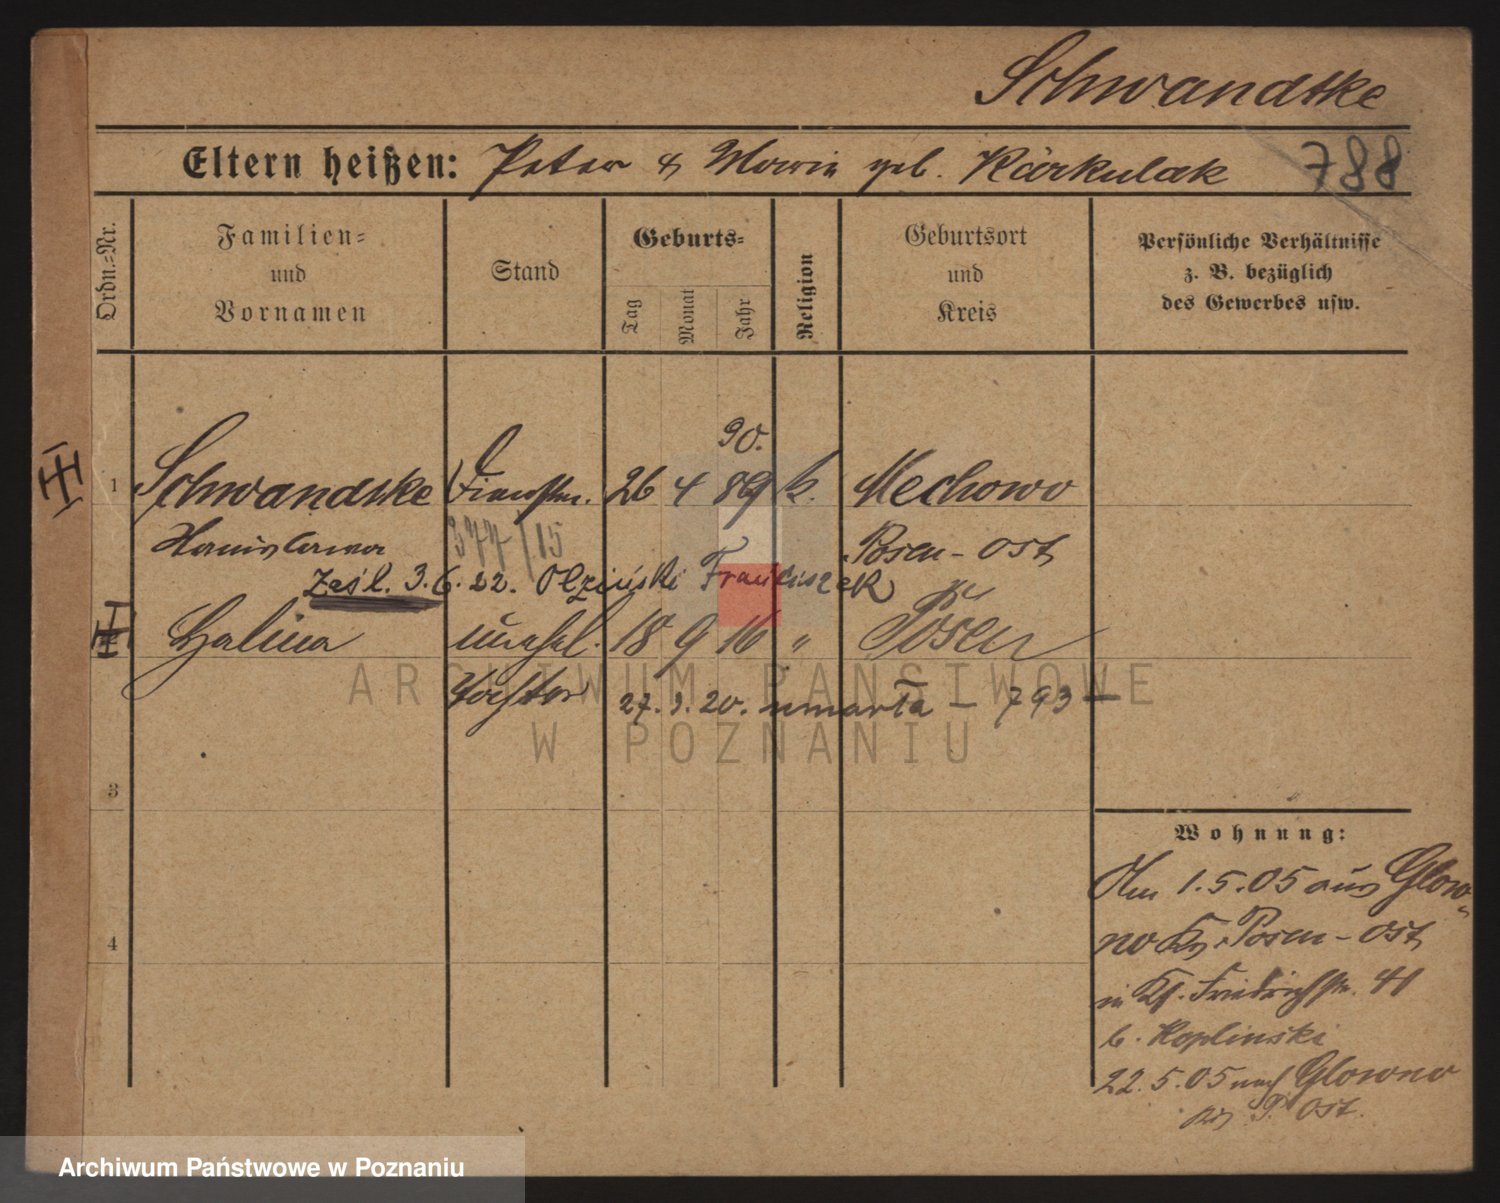 Schwandtke
Eltern heißen: Peter & Marie geb. Kärkulak 788
Ordn.=Nr.
Familien=
und
Vornamen
Stand
Geburts=
Tag
Monat
Jahr
Religion
Geburtsort
und
Kreis
Persönliche Verhältnisse
z. B. bezüglich
des Gewerbes usw.
90.
III 1 Schwandtke 26 4 89 k. Mechowo
Stanislawa 377/15 Posen-Ost
Zaśl. 3.6.22. Olziński Franciszek
Halina unehel. 18 9 16 " Posen
Tochter 27. 3. 20. umarła — 793 —
3
4
Wohnung:
Am 1.5.05 aus Glow-
no Krs. Posen-Ost
in Friedrichstr. 41
b. Koplinski
22.5.05 nach Glowno
Krs P. Ost.
ARCHIWUM PAŃSTWOWE
W POZNANIU
Archiwum Państwowe w Poznaniu